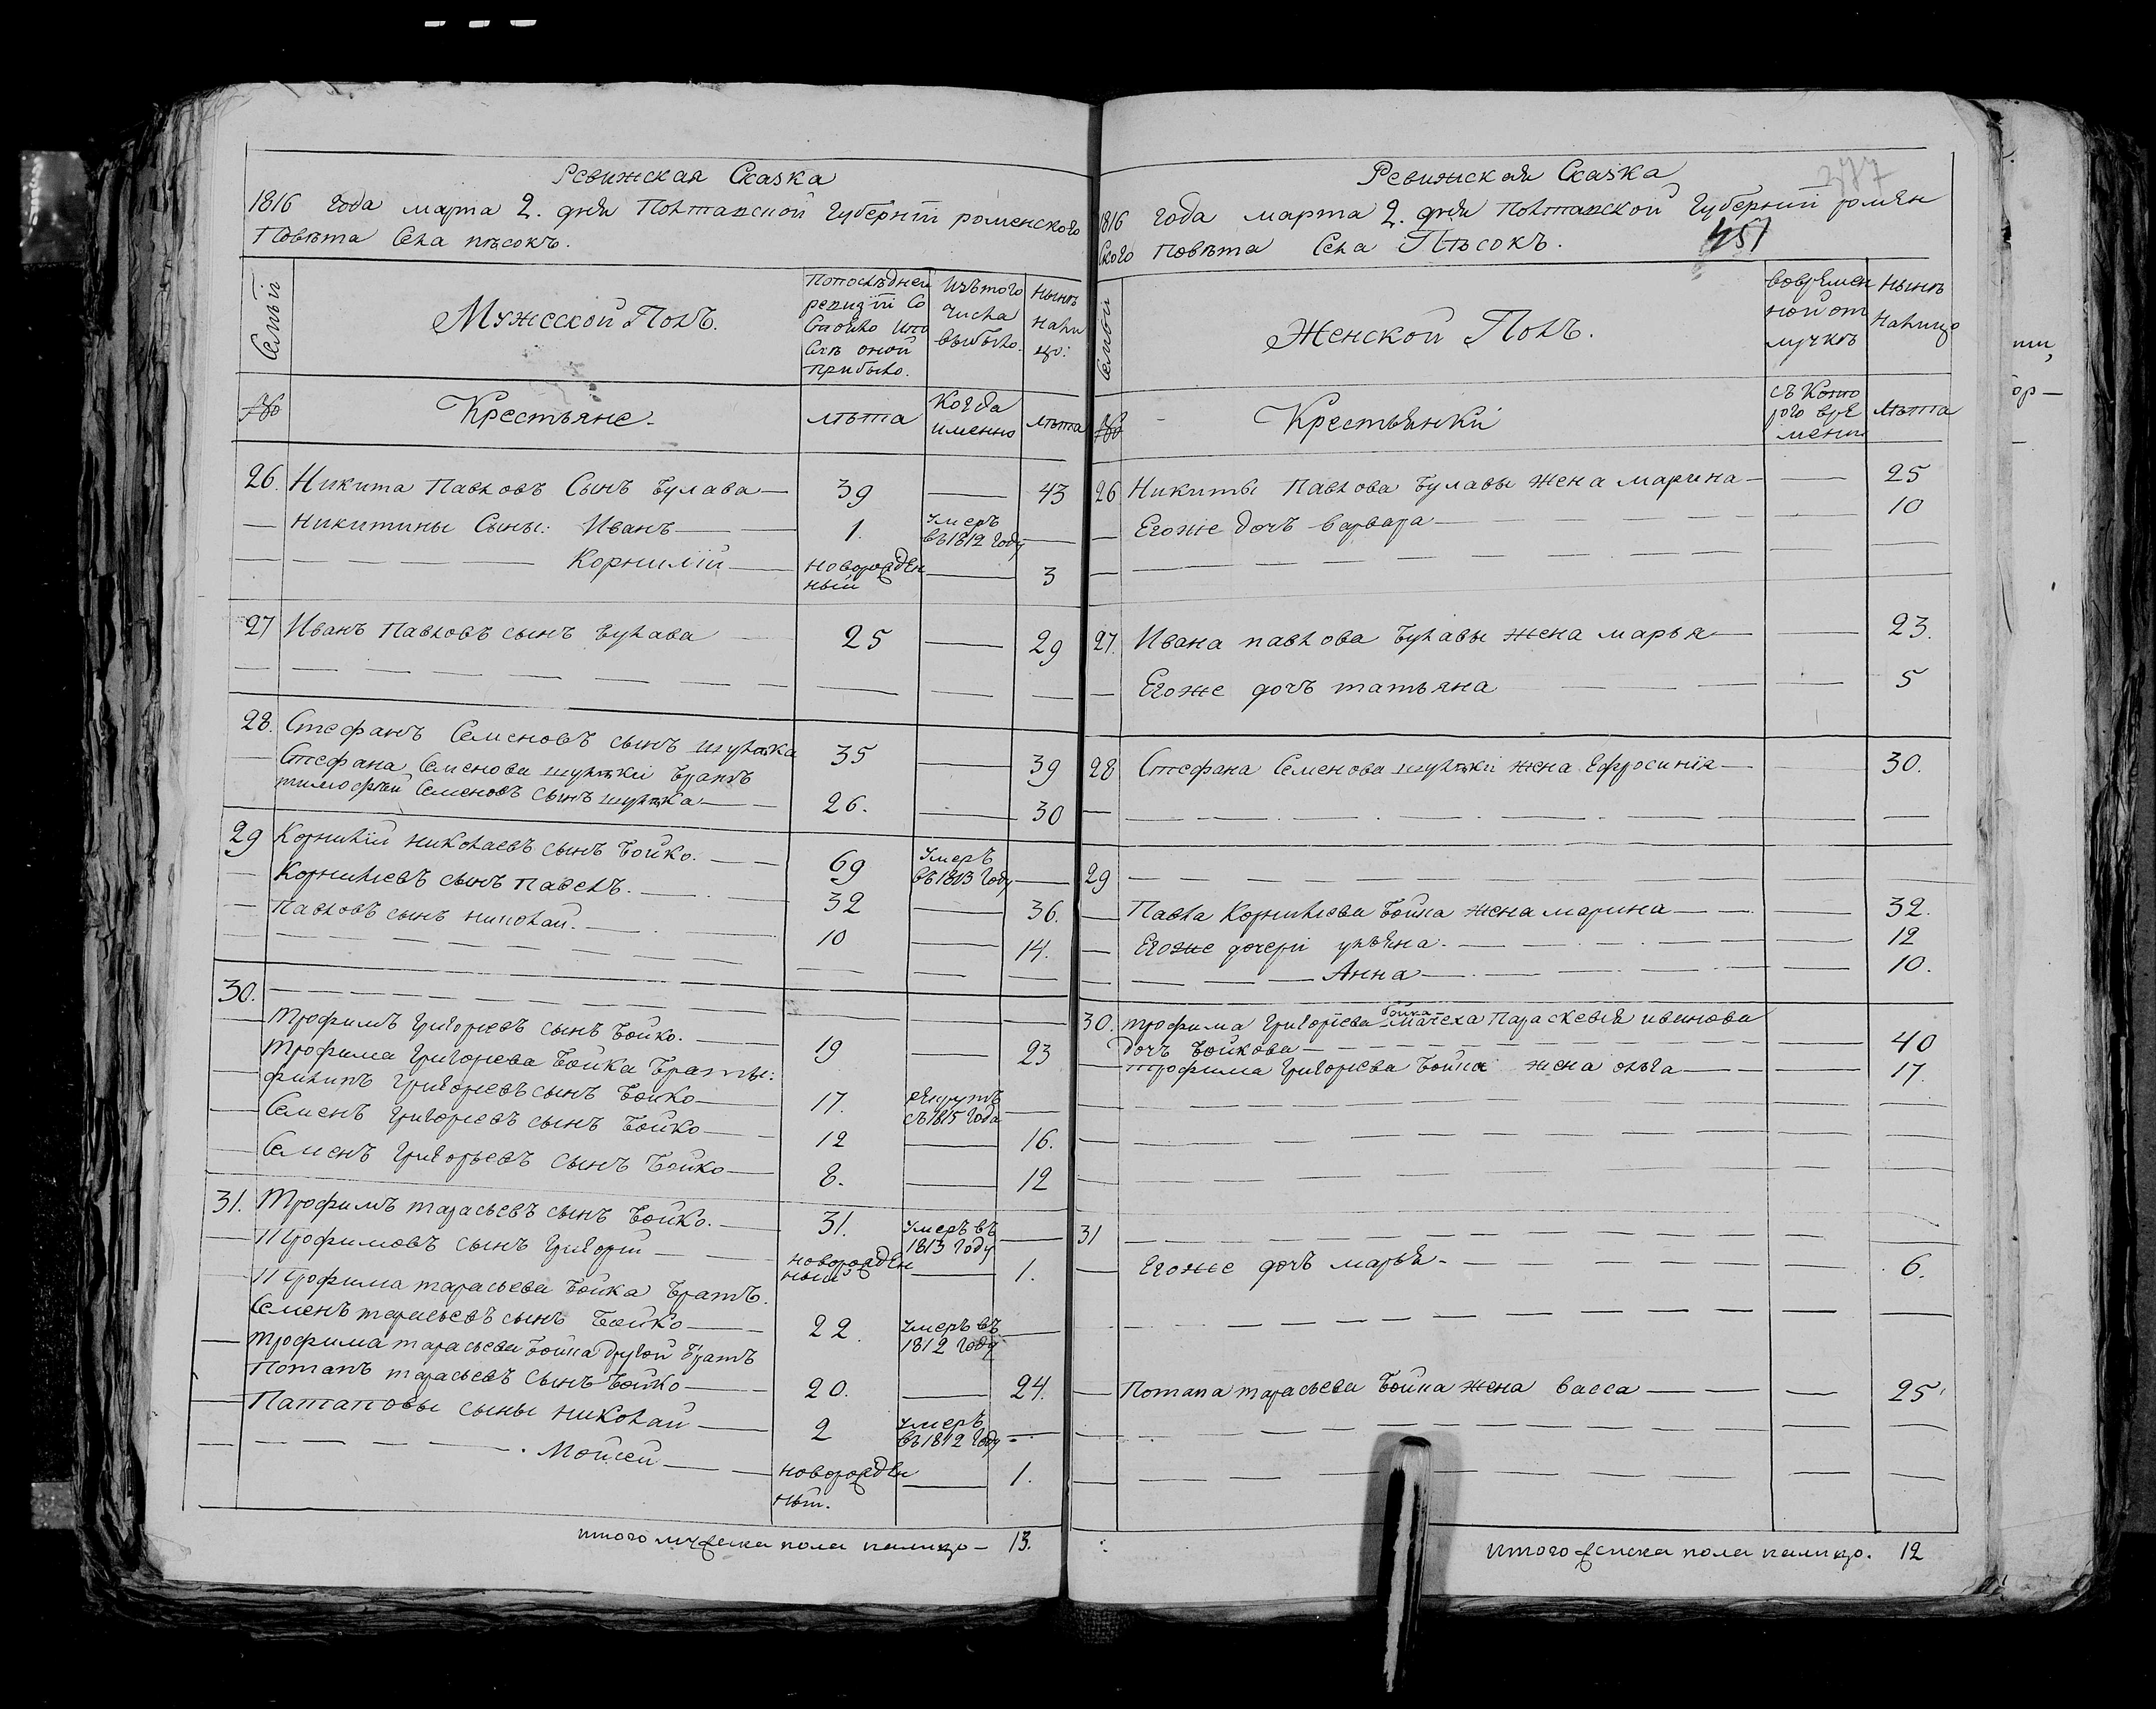 Ревижская Сказка
1816 года марта 2. дня Полтавской Губернïи роменского
Повѣта Села пѣсокъ.
Семьи
Мужеской Полъ.
Попослѣдней
ревизïи Со
стояло ипо
слѣ оной
прибыло.
Изътого
числа
выбыло.
Нынѣ
Нали
цо:
№
Крестьяне
лѣта
Когда
именно
лѣта
26. Никита Павловъ Сынъ Булава 39 43
Никитины Сыны: Иванъ 1. умеръ
въ 1812 году
Корнилïй новорожден
ный 3
27 Иванъ Павловъ сынъ Булава 25 29
28. Стефанъ Семеновъ сынъ шуляка 35 39
Стефана Семенова шулякï Братъ
тимофѣй Семеновъ сынъ шуляка 26. 30
29 Корнилïй николаевъ сынъ Бойко. 69 умеръ
въ 1813 году
Корнилïевъ сынъ Павелъ. 32 36.
Павловъ сынъ николай. 10 14.
30.
Трофимъ Григорïевъ сынъ Бойко. 19 23
Трофима Григорïева Бойка Браты:
филипъ Григорïевъ сынъ Бойко 17. рекрутъ
съ 1815 года
Семенъ Григорïевъ сынъ Бойко 12 16.
Семенъ Григорьевъ сынъ Бойко 8. 12
31. Трофимъ тарасьевъ сынъ Бойко. 31. умеръ въ
1813 году
Трофимовъ сынъ Григорïй новорожден
ный 1.
Трофима тарасьева Бойка Братъ.
Семенъ тарасьевъ сынъ Бойко 22. умеръ въ
1812 году
Трофима тарасьева Бойка другой братъ
Потапъ тарасьевъ сынъ Бойко 20. 24.
Патаповы сыны николай 2 умеръ
въ 1812 году
Мойсей новорожден
ный. 1.
итого мужеска пола налицо 13.
Ревижская Сказка
277
1816 года марта 2. дня Полтавской Губернïи ромен
ского Повѣта Села Пѣсокъ.
451
Семьи
Женской Полъ.
Вовремен
ной от
лучкѣ
Нынѣ
Налицо
№
Крестьянкï
съ Кото
рого вре
мени
лѣта
26 Никиты Павлова Булавы жена марина 25
Егоже дочъ варвара 10
27. Ивана павлова Булавы жена марья 23.
Егоже дочъ татьяна 5
28 Стефана Семенова шулякï жена Ефросинïя 30.
29
Павла Корнилïева Бойка жена марина 32.
Егоже дочерï ульяна. 12
Анна 10.
30. трофима Григорïева бойка мачеха Параскевïя иванова
дочъ Бойкова 40
трофима Григорïева Бойка жена олѣга 17.
31
Егоже дочъ марья. 6.
Потапа тарасьева Бойка жена васса 25
итого женска пола налицо. 12